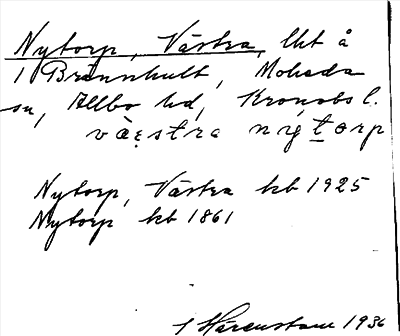 Nytorp, Västra, lht å
1 Brännhult, Moheda
sn, Allbo hd, Kronobs l.
væstra nytorp
Nytorp, Västra kb 1925
Nytorp kb 1861
Härenstam 1936